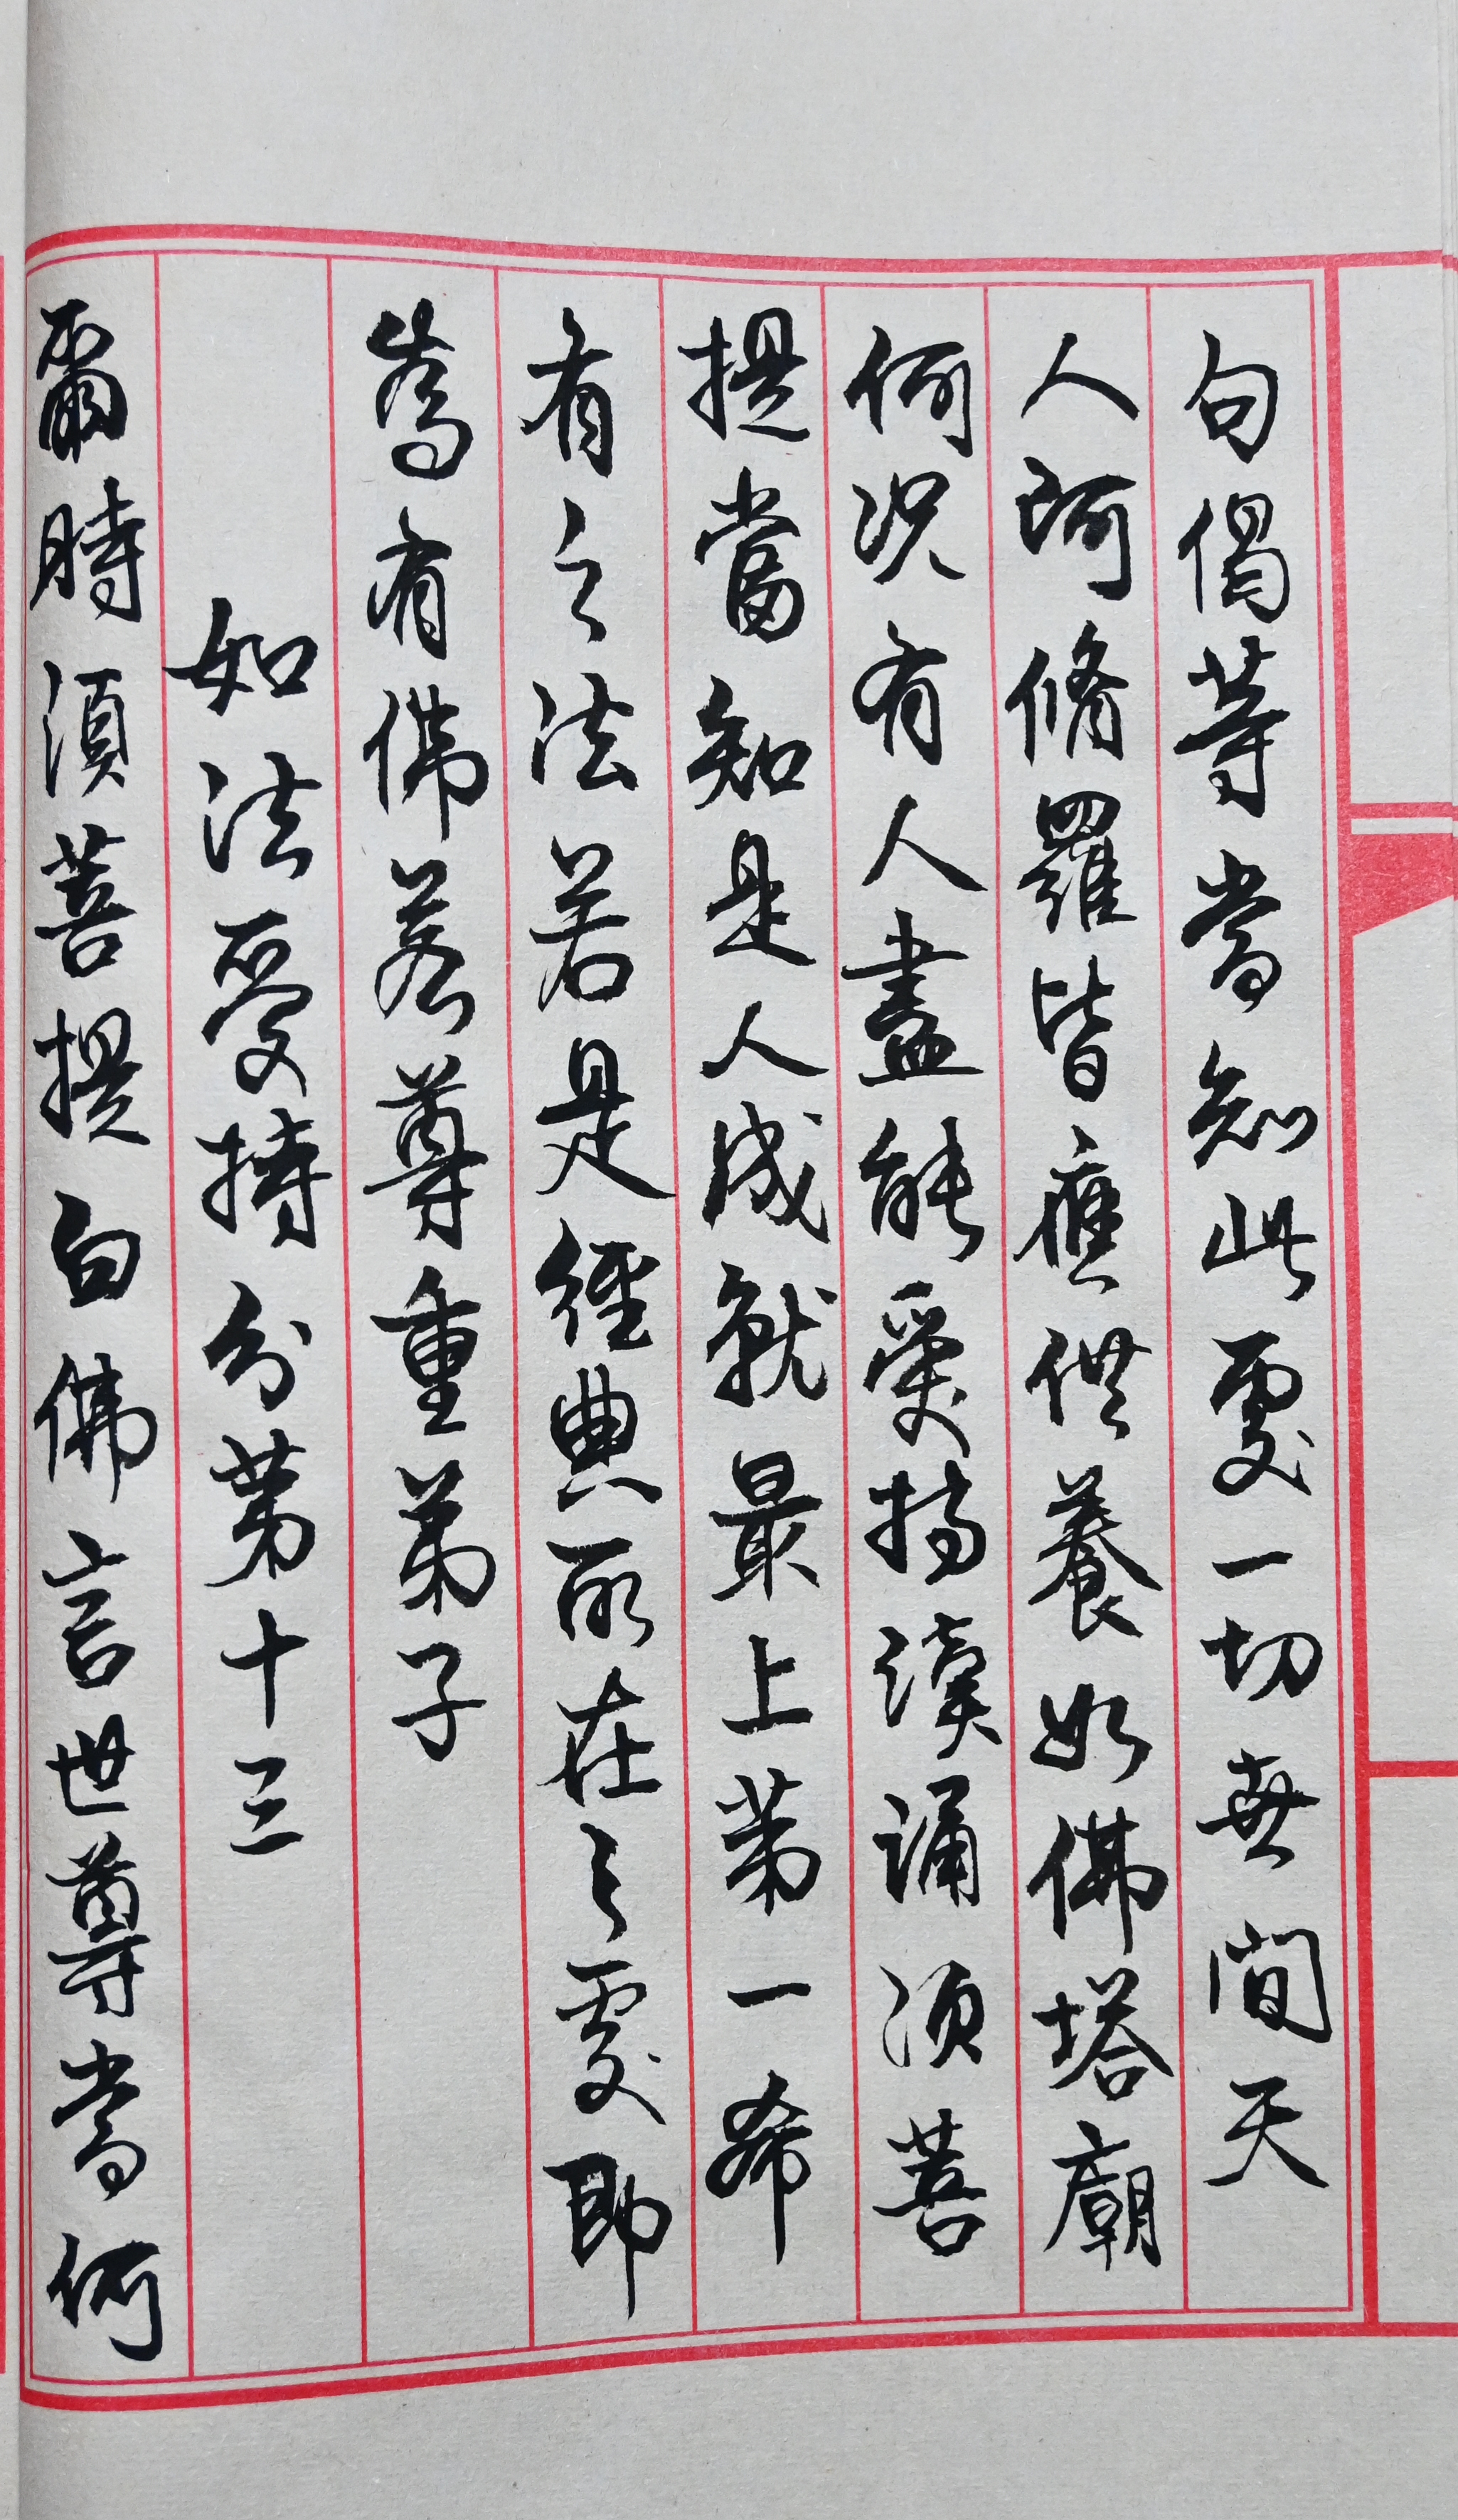 句偈等當知此處一切無間天
人阿脩羅皆應供養如佛塔廟
何況有人盡能受持讀誦須菩
提當知是人成就最上第一希
有之法若是經典所在之處即
為有佛若尊重弟子
如法受持分第十三
爾時須菩提白佛言世尊當何